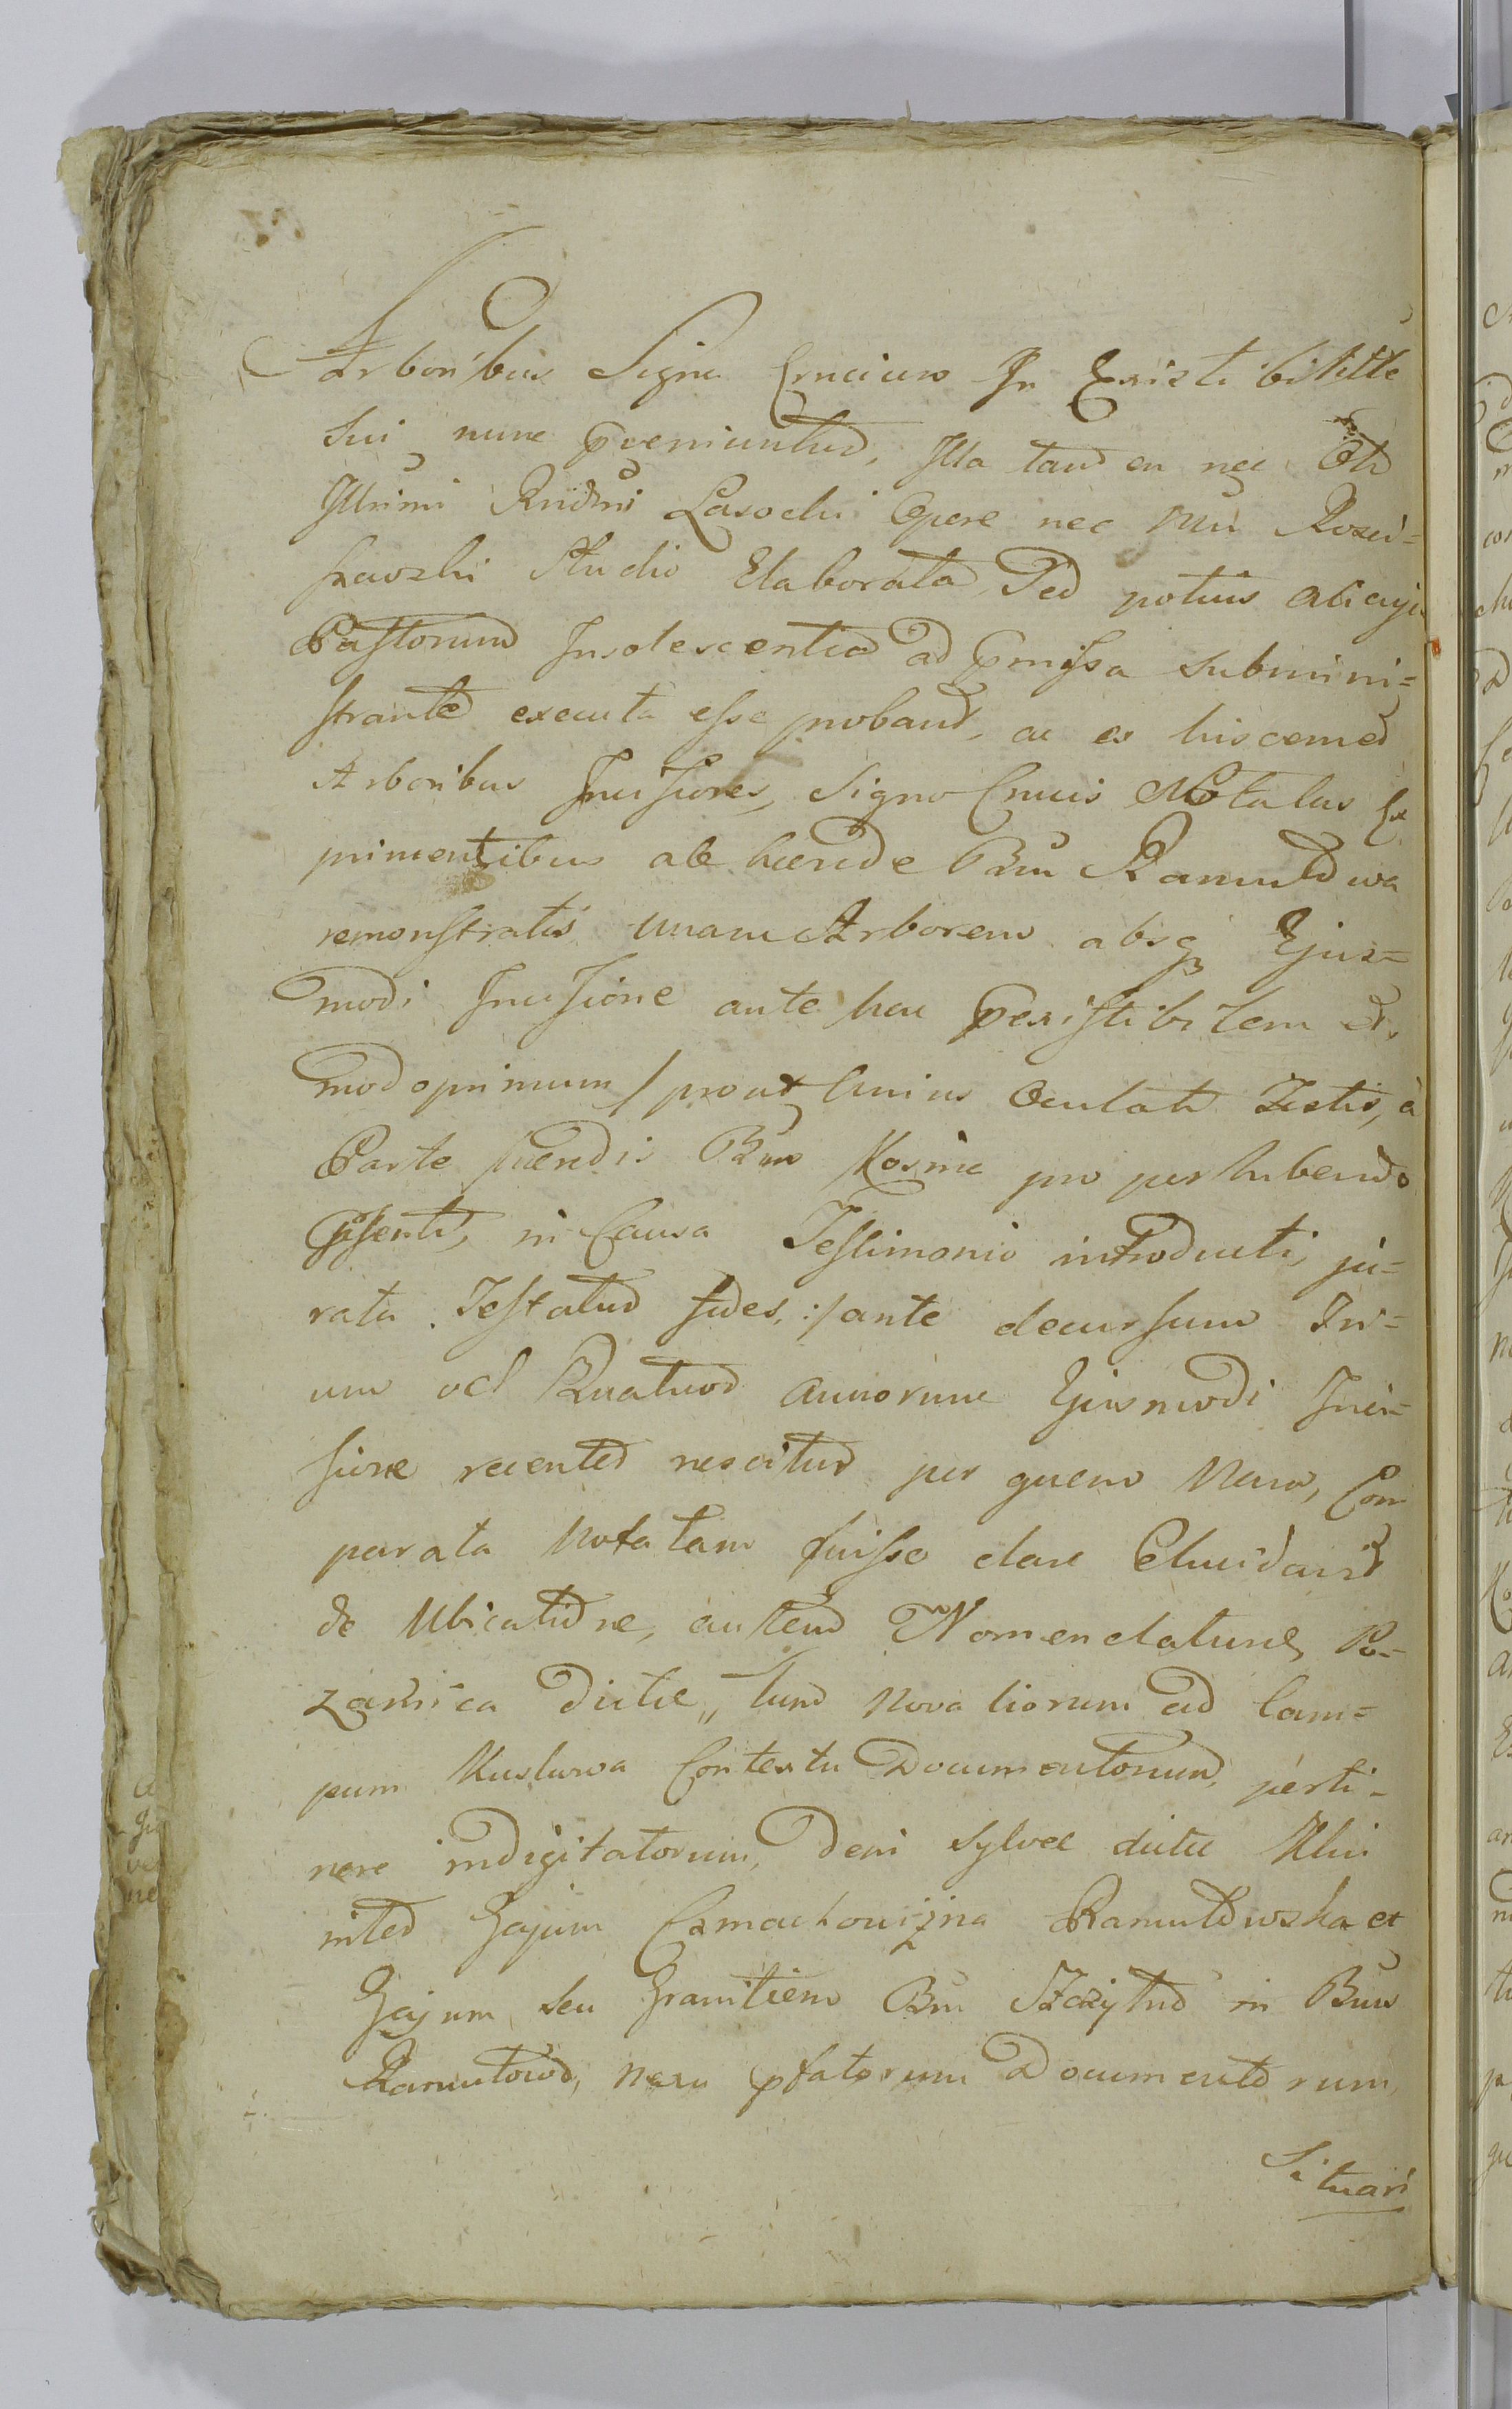 Arboribus Signa Crucium In Existibilitte
sui nunc pveniuntur, Illa tamen nec Olt
Illrimi Rndmi Lasocki Opere nec Mci Rozd=
frawski Studio Elaborata, Sed potius alicujus
Pastorum Insolescentia ad pmissa submini=
strante executa esse probant, ac ex hiscemet
Arboribus Incisiones, Signo Crucis Notatas Ex
primentibus ab hærede Bnu Ramułtowa
remonstratis unam Arborem absq Ejus=
modi Incisione ante hac pexistibilem et
modo primum / prout Unius Oculati Testis, à
Parte hæredis Bnu Kosmy pro perhibendo
psenti, in Causa Testimonio introducti, ju=
rata Testatur fides, :/ ante decursum Tri=
um vel Quatuor annorum Ejusmodi Inci=
sione recenter nescitur per quem Nam, Com
parata Notatam fuisse clare Elucidavit
de Ubicatione, autem Nomenclaturæ Po=
zarnica dictæ, tum Novaliorum ad Cam=
pum Kuslowa Contextu Documentorum, perti=
nere indigitatorum, Deni Sylvæ dictæ Klin
inter Gajum Czmochowizna Ramułtowska et
Gajum, seu Granitiem Bnu Szczytno in Bnu
Ramułtowo, nexu pfatorum Documentorum
Situari